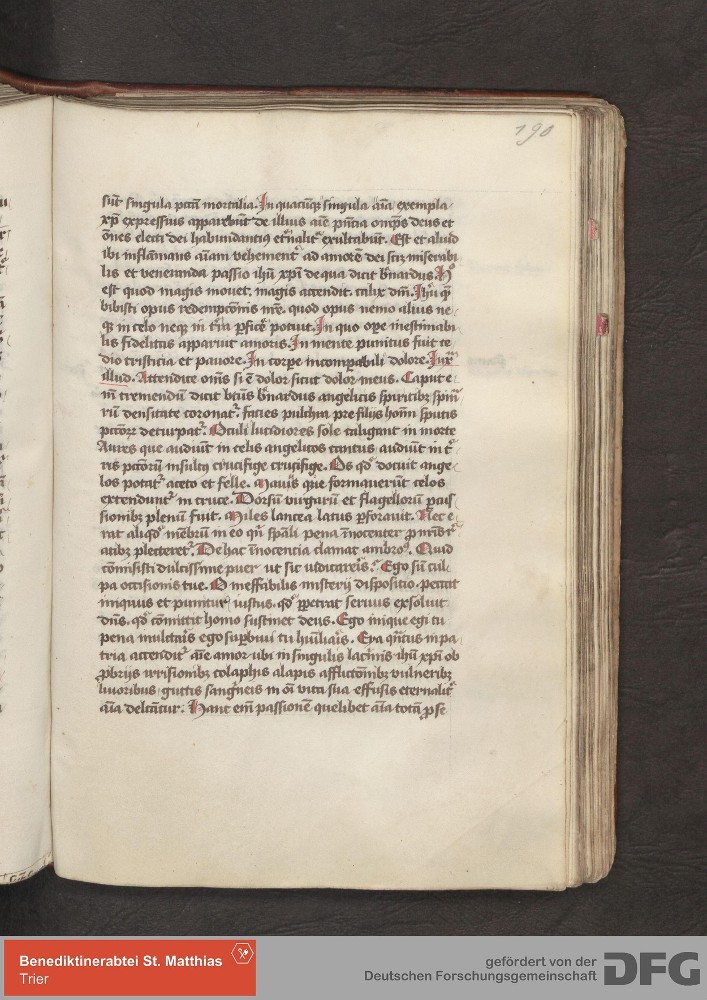 190
sūt singula pctā mortalia. In quacūqꝫ singula aīa exempla
xpī expressius apparebūt de illius aīe pn̄tia om̄ps deus et
om̄es electi dei habundantiꝰ et̄nalit̄ exultabūt. Est et aliud
ibi inflām̄ans aīam vehement̄ ad amorē dei scꝫ miserabi
lis et veneranda passio ihū xpī de qua dicit b̄nardus. Hoc
est quod magis mouet. magis accendit. calix dn̄i Ihū quē
bibisti opus redempcōnis nr̄e. quod opus nemo alius ne
qꝫ in celo neqꝫ in t̄ra ꝑfic̄e potuit. In quo oꝑe inestimabi
lis fidelitas apparuit amoris. In mente punitus fuit te
dio tristicia et pauore. In corꝑe incompabili dolore. Iuxᵃ
illud. Attendite om̄s si ē dolor sicut dolor meus. Caput e
ni tremendū dicit btūs b̄nardus angelicis spiritibꝫ spinaꝝ
densitate coronat̄. facies pulchra pre filijs hom̄i sputis
pctorꝝ deturpat̄. Oculi lucidiores sole caligant in morte
Aures que audiūt in celis angelicos cantus audiūt in t̄
ris pctorū insultꝰ crucifige crucifige. Os qd̄ docuit ange
los potat̄ aceto et felle. Manus que formauerūt celos
extenduūt̄ in cruce. Dorsū virgarū et flagellorū pcus
sionibꝫ plenū fuit. Miles lancea latus ꝑforauit. Nec e
rat aliqd̄ mēbrū in eo qn̄ spāli pena īnocenter ꝓ
atibꝫ plecteret̄. De hac īnocentia clamat ambroꝰ. Quid
cōmisisti dulcissime puer ut sic iudicareīs. Ego sū cul
pa occisionis tue. O ineffabilis misterij dispositio. peccat
iniquus et punitur iustus. qd̄ ꝑpetrat seruus exsoluit
dn̄s. qd̄ cōmittit homo sustinet deus. Ego inique egi tu
pena multaīs ego suꝑbiui tu hūiliaīs. Ex q̄ntus in pa
tria accendit̄ aīe amor ubi in singulis lacīnis ihū xpī ob
ꝓbrijs irrisionibꝫ colaphis alapis afflictōnibꝫ vulneribꝫ
liuoribus guttis sanḡneis in oī vita sua effusis eternalit̄
aīa delcātur. Hanc em̄ passionē quelibet aīa totā ꝓ se
Benediktinerabtei St. Matthias
Trier
gefördert von der
Deutschen Forschungsgemeinschaft
DFG